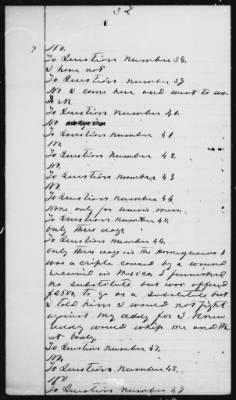 32
7 No.
To Question Number 38.
I have not
To Question Number 39
No I came here and went to work
To Question Number 40.
No
To Question Number 41
No.
To Question Number 42.
No
To Question Number 43
No.
To Question Number 44.
None only for
To Question Number 45.
only three days
To Question Number 46.
only three days in the Homeguards I
was a criple caused by a wound
received in Mexico I furnished
no substitute but was offered
to go as a substitute but
I told him I would not fight
against my daddy for I knew
daddy would whip me and
body
To Question Number 47.
No.
To Question Number 48.
No
To Question Number 49